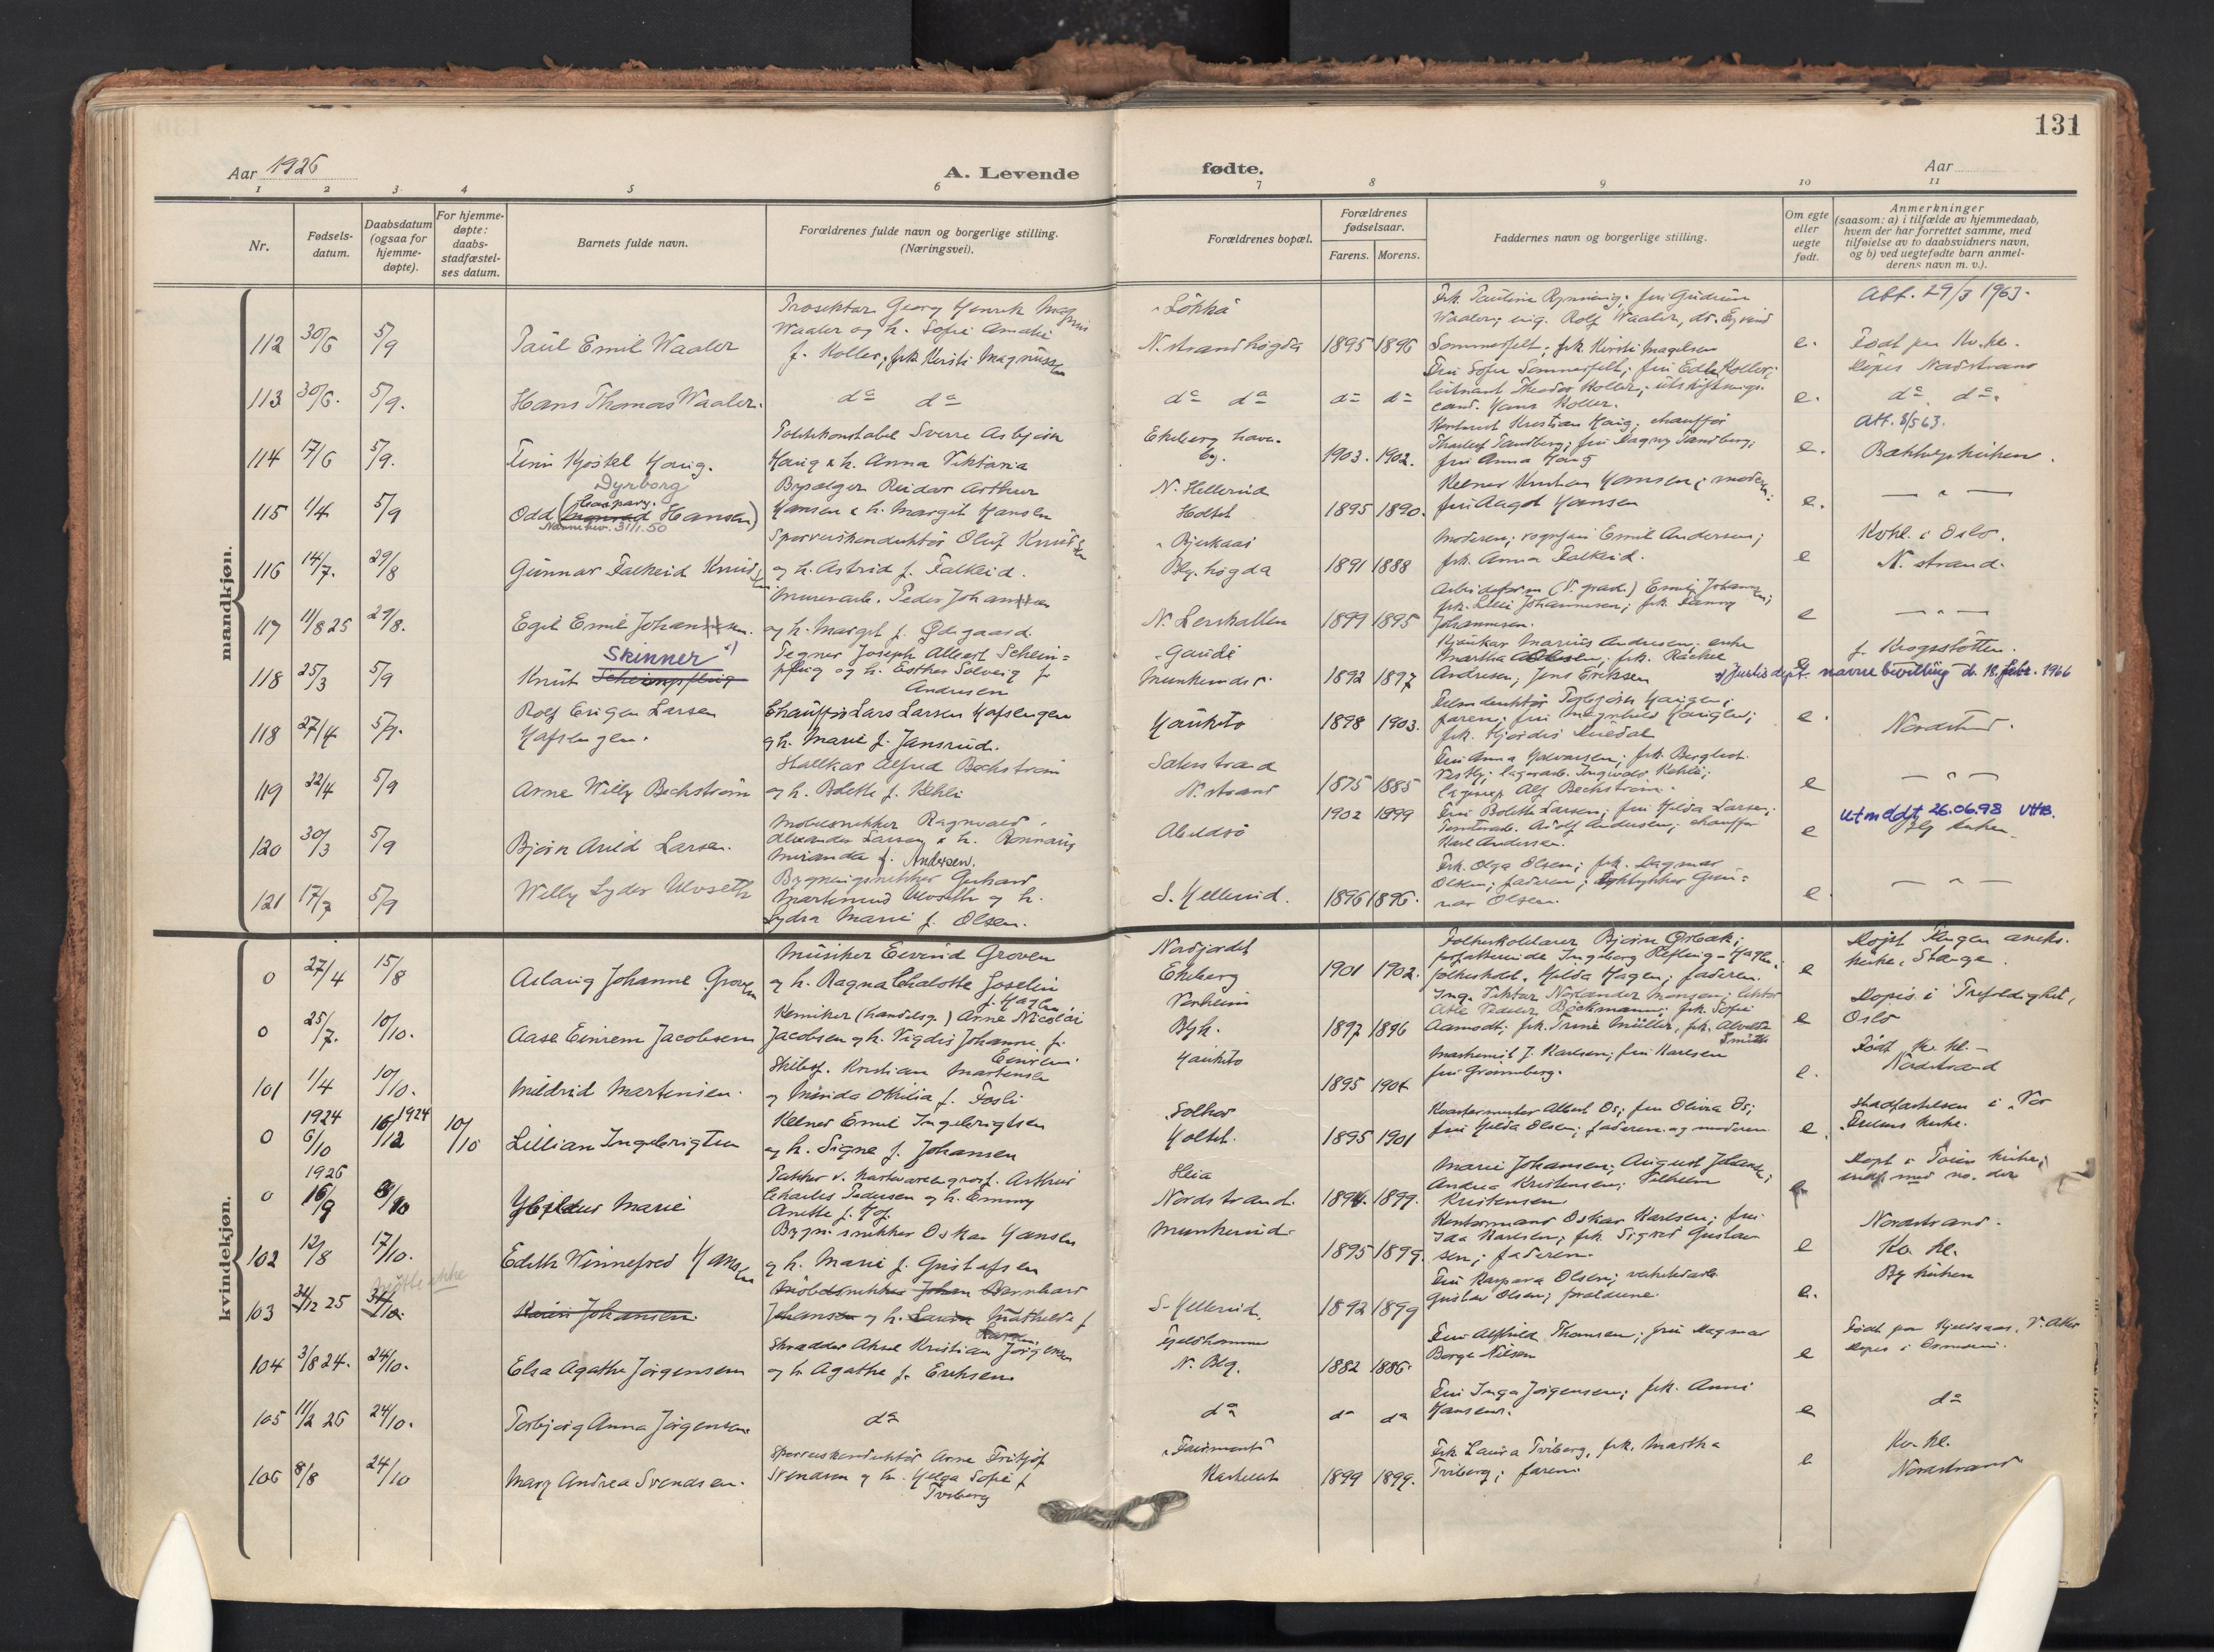 131
Aar 1926
A. Levende
fødte.
Aar
1 2 3 4 5 6 7 8 9 10 11
Nr.
Fødsels-
datum.
Daabsdatum
(ogsaa for
hjemme-
døpte).
For hjemme-
døpte:
daabs-
stadfæstel-
ses datum.
Barnets fulde navn.
Forældrenes fulde navn og borgerlige stilling.
(Næringsvei).
Forældrenes bopæl.
Forældrenes
fødselsaar.
Farens. Morens.
Faddernes navn og borgerlige stilling.
Om egte
eller
uegte
født.
Anmerkninger
(saasom: a) i tilfælde av hjemmedaab,
hvem der har forrettet samme, med
tilføielse av to daabsvidners navn,
og b) ved uegtefødte barn anmel-
derens navn m. v.).
mandkjøn.
112 30/6 5/9 Paul Emil Waaler
Prosektor Georg Henrik Magnus
Waaler og h. Sofie Amalie
f. Holler; frk. Kirsti Magnussen
N. strandhøgda 1895 1896
Waaler; ing. Rolf Waaler, dr. Eyvind
Sommerfelt; frk. Kirsti Magelsen
e.
Att. 29/3 1963.
Født paa Kv. kl.
Døpt Nordstrand
113 30/6. 5/9. Hans Thomas Waaler.
do do
do do
do do
Fru Sofie Sommerfelt; fru Edle Holler;
løitnant Theodor Holler; utskiftnings-
cand. Hans Holler.
e.
do do
114 17/6 5/9. Finn Kjostel Hauig.
Politikonstabel Sverre Asbjørn
Hauig & h. Anna Viktoria
Ekeberg have-
by.
1903. 1902.
Tandberg; fru Dagny Tandberg;
fru Anna Hauig
e.
Att. 8/5 63.
Bækkelagskirken.
115 1/4 5/9
Dyrborg
Caspary.
Odd Hansen)
Navnebev. 31/1.50
Bypælger Reidar Arthur
Hansen & h. Margit Hansen
N. Hellerud
Holtet
1895 1890.
Kelner Hansen; moderen;
fru Aagot Hansen
e.
— " —
116 14/7. 29/8
Gunnar Falkeid Knudsen
Sporveiskonduktør Oluf Knudsen
og h. Astrid f. Falkeid.
Bjerkaas
Blg. høgda
1891 1888
Moderen; vognfører Emil Andersen;
frk. Anna Falkeid.
e
Kvkl. i Oslo.
N. strand.
117 11/8 25 29/8.
Egil Emil Johansen.
Murerarb. Peder Johansen
og h. Margit f. Ødegaard.
N. Lerskallen
1899 1895
frk. Lilli Johannesen; frk. Fanny
Johannesen.
e
— " —
118 25/3 5/9
Skinner x)
Knut Scheimpflug
Tegner Joseph Albert Schein=
pflug og h. Esther Solveig f.
Andresen
Gaudi
Munkerud
1892 1897
Marius Andresen; enke
Martha Olsen; frk. Rakel
Andresen; Jens Eriksen
f. Krogsstøtten.
x) Justisdept. navnebevilling d. 18. febr. 1966
118 27/4 5/9.
Rolf Erigen Larsen
Hafsengen.
Chauffør Lars Larsen Hafsengen
og h. Marie f. Jansrud.
Hauketo
1898 1903.
e.
Nordstrand.
119 22/4 5/9
Arne Willy Bechstrøm
Stallkar Alfred Bechstrøm
og h. Bolette f. Kehli
N. strand
1875 1885
Fru Anna Halvorsen; frk. Bergliot
Vestby; lagerarb. Ingvald Kehli;
Alf Bechstrøm.
e
— " —
120 30/3 5/9
Bjørn Arild Larsen.
Møbelsnekker Ragnvald
Alexander Larsen & h. Rønnaug
Miranda f. Andersen.
Abildsø
1902 1899
Fru Bolette Larsen; fru Hilda Larsen;
Adolf Andersen; chauffør
Karl Andersen.
e
utmeldt 26.06.98 VHB.
121 17/7 5/9
Willy Lyder Ulvseth
Bygningssnekker Gerhard
Martinius Ulvseth og h.
Lydia Marie f. Olsen.
S. Hellerud.
1896 1896.
Frk. Olga Olsen; frk. Dagmar
Olsen; faderen; Gun=
nar Olsen.
e.
— " —
kvindekjøn.
0 27/4 15/8
Aslaug Johanne Groven
Musiker Eivind Groven
og h. Ragna Charlotte Joselin
f. Hagen
Nordjordet
Ekeberg
1901 1902.
Folkeskolelærer Bjørn Ørbæk;
forfatterinde Ingeborg Refling-Hagen;
Hilda Hagen; faderen.
e
Døpt Tangen aneks-
kirke, Stange.
0 25/7. 10/10.
Aase Einrem Jacobsen
Kemiker (handelsg.) Arne Nicolai
Jacobsen og h. Vigdis Johanne f.
Einrem.
1897 1896
Ing. Viktor Nordander Monsen; lektor
Atle Vedeler Bøckmann; frk. Sofie
Aamodt; frk. Trine Müller, frk. Alvilde
Smith
e
Døpt i Trefoldighet,
Oslo
101 1/4 10/10.
Mildrid Martensen.
Kristian Martensen
og Minda Othilia f. Fosli
Hauketo
1895 1904
Maskinist J. Karlsen; fru Karlsen
fru Grønneberg.
e.
Født Kv. kl.
Nordstrand
0 1924 6/10 16/12 1924 10/10
Lillian Ingebrigtsen
Kelner Emil Ingebrigtsen
og h. Signe f. Johansen
Solhov
Holtet.
1895 1901
Kvartermester Albert Os; fru Olivia Os;
fru Hilda Olsen; faderen og moderen
e.
Stadfæstelsen i Vor
Frelsers kirke.
0 1926 16/9 8/10
Marie
Charles Pedersen og h. Emmy
Anette f. Hof.
Heia
Nordstrand.
1894. 1899.
Marie Johansen; August Johansen;
Andrea Kristensen; Vilhelm
Kristensen
Døpt i Tøien kirke,
indf. med no. der
102 12/8 17/10.
Edith Winnefred Hansen
Bygn. snekker Oskar Hansen
og h. Marie f. Gustafsen
Munkerud
1895 1899.
Kontormand Oskar Karlsen; fru
Ida Karlsen; frk. Sigrid Gustav
sen; faderen.
e
Nordstrand.
Kv. kl.
103 31/12 25 31/10.
møtte ikke
Johansen
Møbelsnekker Johan Bernhard
Johansen og h. Laura Mathilde f.
Larsen.
S. Hellerud.
1892 1899
Fru Kaspara Olsen;
Gustav Olsen; forældrene.
e.
By kirken
104 3/8 24. 24/10.
Elsa Agathe Jørgensen
Skrædder Aksel Kristian Jørgensen
og h. Agathe f. Eriksen
Fjeldhammer
N. Blg.
1882 1886.
Fru Alfhild Thomsen; fru Dagmar
Borge Nilsen
e
Født paa Kjelsaas, V. Aker
105 11/2 26 24/10.
Torbjørg Anna Jørgensen.
do
do
do do
Fru Inga Jørgensen; frk. Anni
Hansen.
e
do
106 8/8 24/10
Mary Andrea Svendsen.
Sporveiskonduktør Arne Fritjof
Svendsen og h. Helga Sofie f.
Tviberg
"Fairmont"
Kastellet
1899 1899.
Frk. Laura Tviberg, frk. Martha
Tviberg; faren.
e
Kv. kl.
Nordstrand